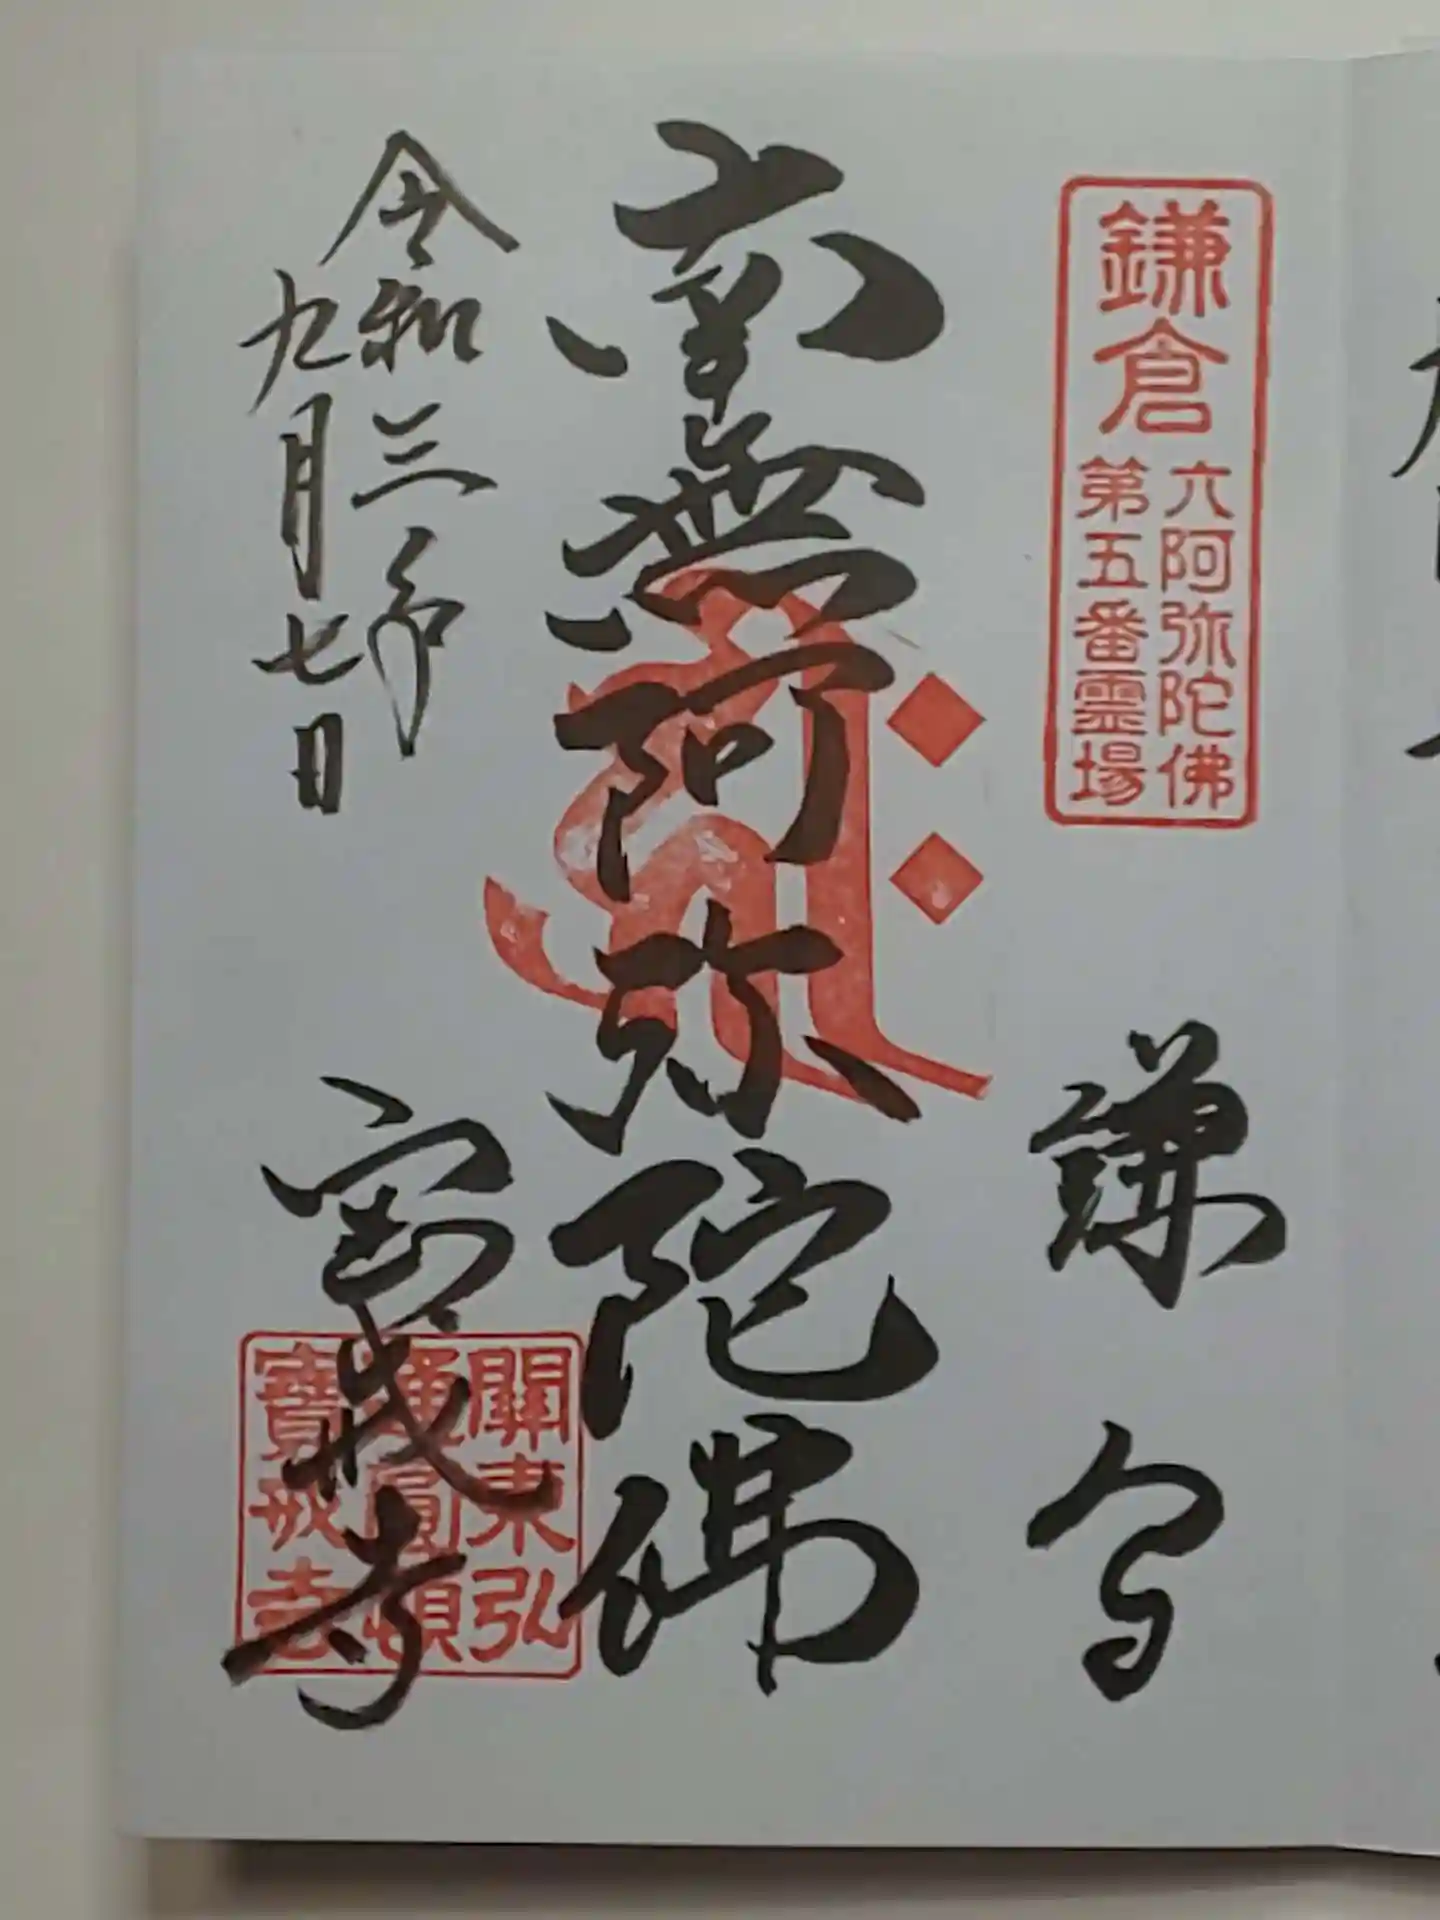 鎌倉
六阿弥陀佛
第五番霊場
鎌倉
南無阿弥陀佛
令和三年
九月七日
宝戒寺
關東弘
通圓頓
寶戒寺